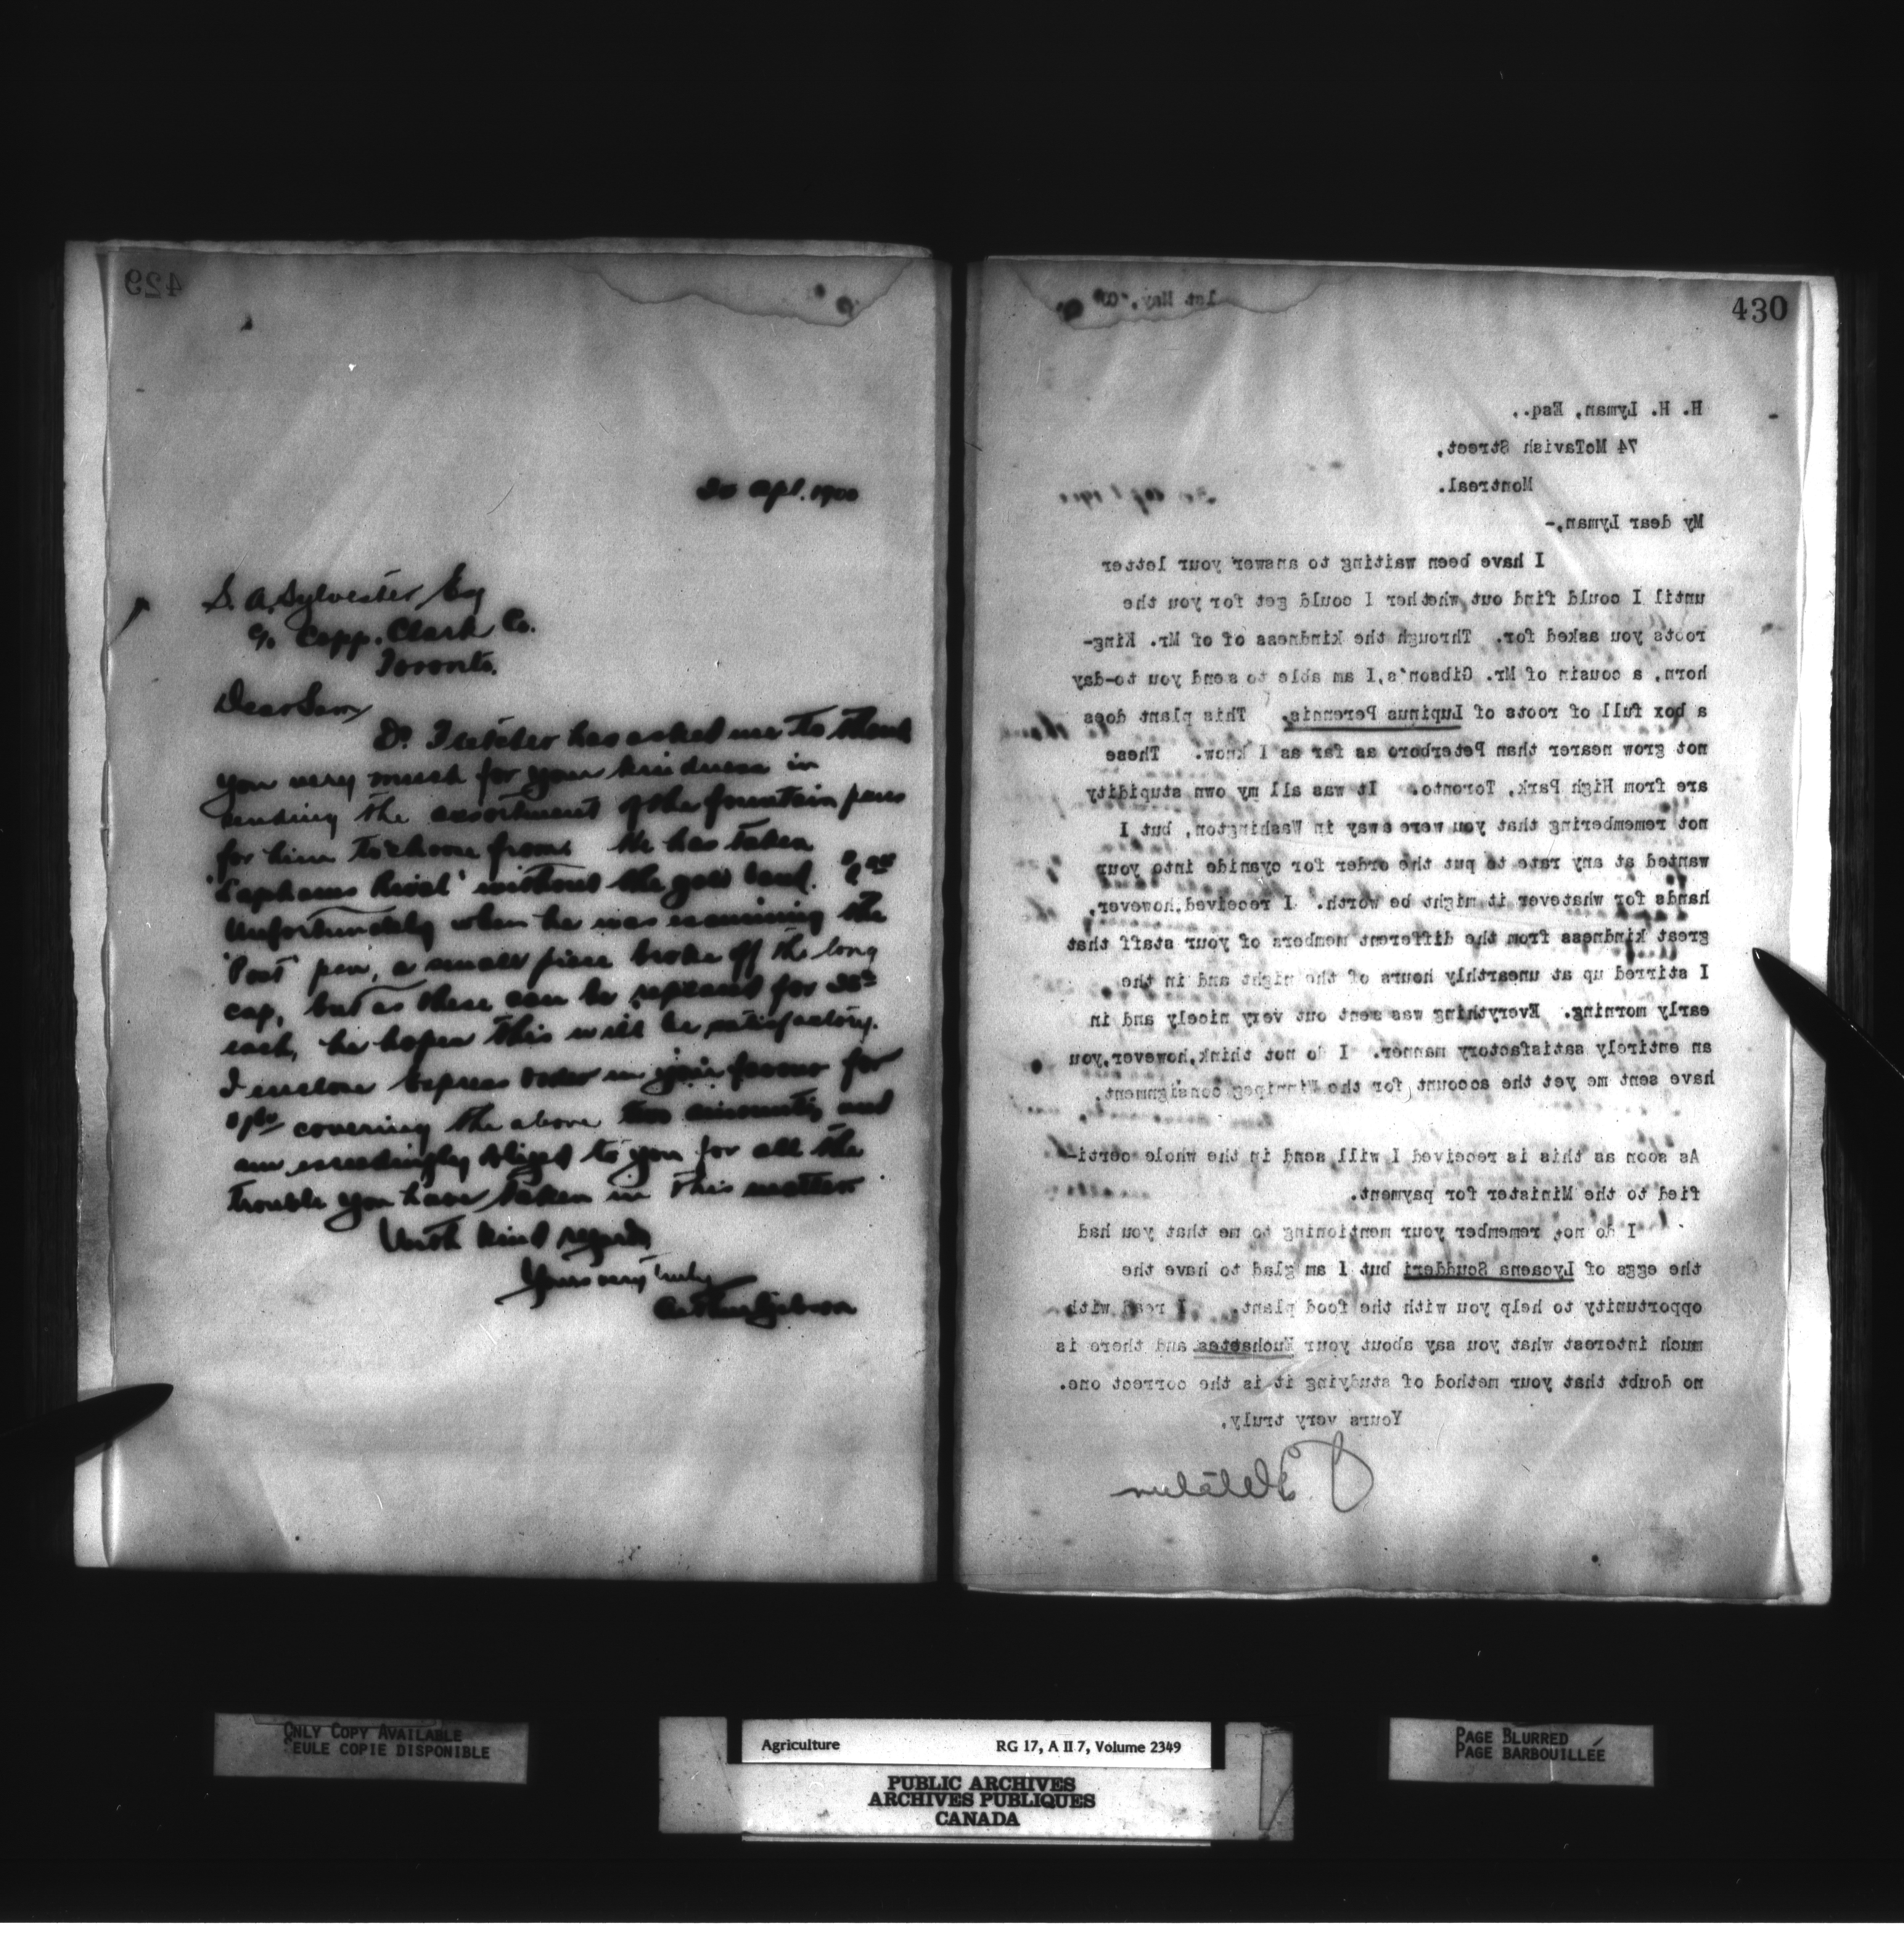 429
30 Apl. 1900
S. A. Sylvester Esq
c/o Copp. Clark Co.
Toronto.
Dear Sam
Dr. Fletcher has asked me to thank
you very much for your kindness in
sending the assortment of the fountain pens
for him to choose from. He has taken
without the gold band.
Unfortunately when he was examining the
'Post' pen, a small piece broke off the long
cap, but as these can be replaced for
each, he hopes this will be satisfactory.
I enclose Express Order in your favour for
covering the above two amounts, and
am exceedingly obliged to you for all the
trouble you have taken in this matter
With kind regards
Yours very truly
Arthur Gibson
430
1st May,
H. H. Lyman, Esq.,
74 McTavish Street,
Montreal.
My dear Lyman,-
I have been waiting to answer your letter
until I could find out whether I could get for you the
roots you asked for. Through the kindness of of Mr. King-
horn, a cousin of Mr. Gibson's, I am able to send you to-day
a box full of roots of Lupinus Perennis. This plant does
not grow nearer than Peterboro as far as I know. These
are from High Park, Toronto. It was all my own stupidity
not remembering that you were away in Washington, but I
wanted at any rate to put the order for cyanide into your
hands for whatever it might be worth. I received, however,
great kindness from the different members of your staff that
I stirred up at unearthly hours of the night and in the
early morning. Everything was sent out very nicely and in
an entirely satisfactory manner. I do not think, however, you
have sent me yet the account for the Winnipeg consignment.
As soon as this is received I will send in the whole certi-
fied to the Minister for payment.
I do not remember your mentioning to me that you had
the eggs of Lycaena Scudderi but I am glad to have the
opportunity to help you with the food plant. I read with
much interest what you say about your Euchaetes and there is
no doubt that your method of studying it is the correct one.
Yours very truly,
J. Fletcher
ONLY COPY AVAILABLE
SEULE COPIE DISPONIBLE
Agriculture RG 17, A II 7, Volume 2349
PUBLIC ARCHIVES
ARCHIVES PUBLIQUES
CANADA
PAGE BLURRED
PAGE BARBOUILLÉE